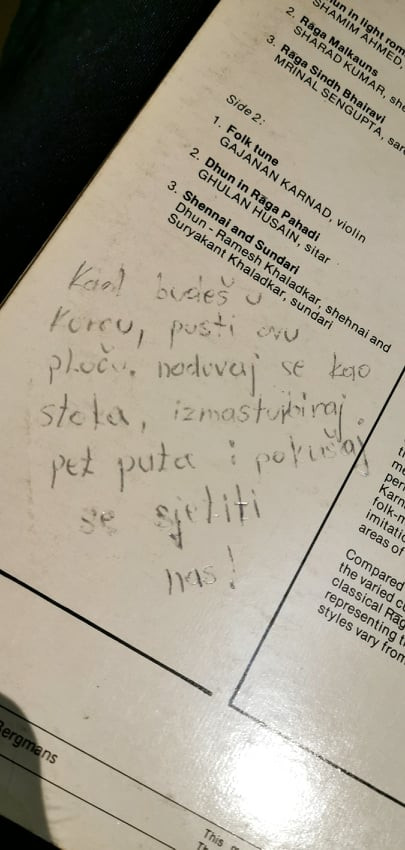 un in light rom
SHAMIM AHMED,
2. Rāga Malkauns
SHARAD KUMAR, she
3. Rāga Sindh Bhairavi
MRINAL SENGUPTA, sar
Side 2:
1. Folk tune
GAJANAN KARNAD, violin
2. Dhun in Rāga Pahadi
GHULAN HUSAIN, sitar
3. Shennai and Sundari
Dhun - Ramesh Khaladkar, shehnai and
Suryakant Khaladkar, sundari
Kad budeš u
kurcu, pusti ovu
ploču, naduvaj se kao
stoka, izmasturbiraj
pet puta i pokušaj
se sjetiti
nas!
th
me
per
Karn
folk-m
imitatio
areas of
Compared
the varied cu
classical Rāg
representing th
styles vary from
Bergmans
This
Th